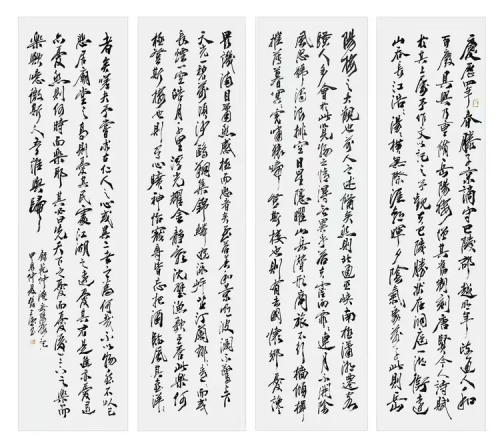 慶曆四年春滕子京謫守巴陵郡越明年政通人和
百廢具興乃重修岳陽樓增其舊制刻唐賢今人詩賦
於其上屬予作文以記之予觀夫巴陵勝狀在洞庭一湖銜遠
山吞長江浩浩湯湯橫無際涯朝暉夕陰氣象萬千此則岳
陽樓之大觀也前人之述備矣然則北通巫峽南極瀟湘遷客
騷人多會於此覽物之情得無異乎若夫霪雨霏霏連月不開陰
風怒號濁浪排空日星隱曜山岳潛形商旅不行檣傾楫
摧薄暮冥冥虎嘯猿啼登斯樓也則有去國懷鄉憂讒
畏譏滿目蕭然感極而悲者矣至若春和景明波瀾不驚上下
天光一碧萬頃沙鷗翔集錦鱗游泳岸芷汀蘭郁郁青青而或
長煙一空皓月千里浮光耀金靜影沈璧漁歌互答此樂何
極登斯樓也則有心曠神怡寵辱皆忘把酒臨風其喜洋洋
者矣嗟夫予嘗求古仁人之心或異二者之為何哉不以物喜不以己
悲居廟堂之高則憂其民處江湖之遠則憂其君是進亦憂退
亦憂然則何時而樂耶其必曰先天下之憂而憂後天下之樂而
樂歟噫微斯人吾誰與歸
錄范仲淹岳陽樓記
甲辰仲夏